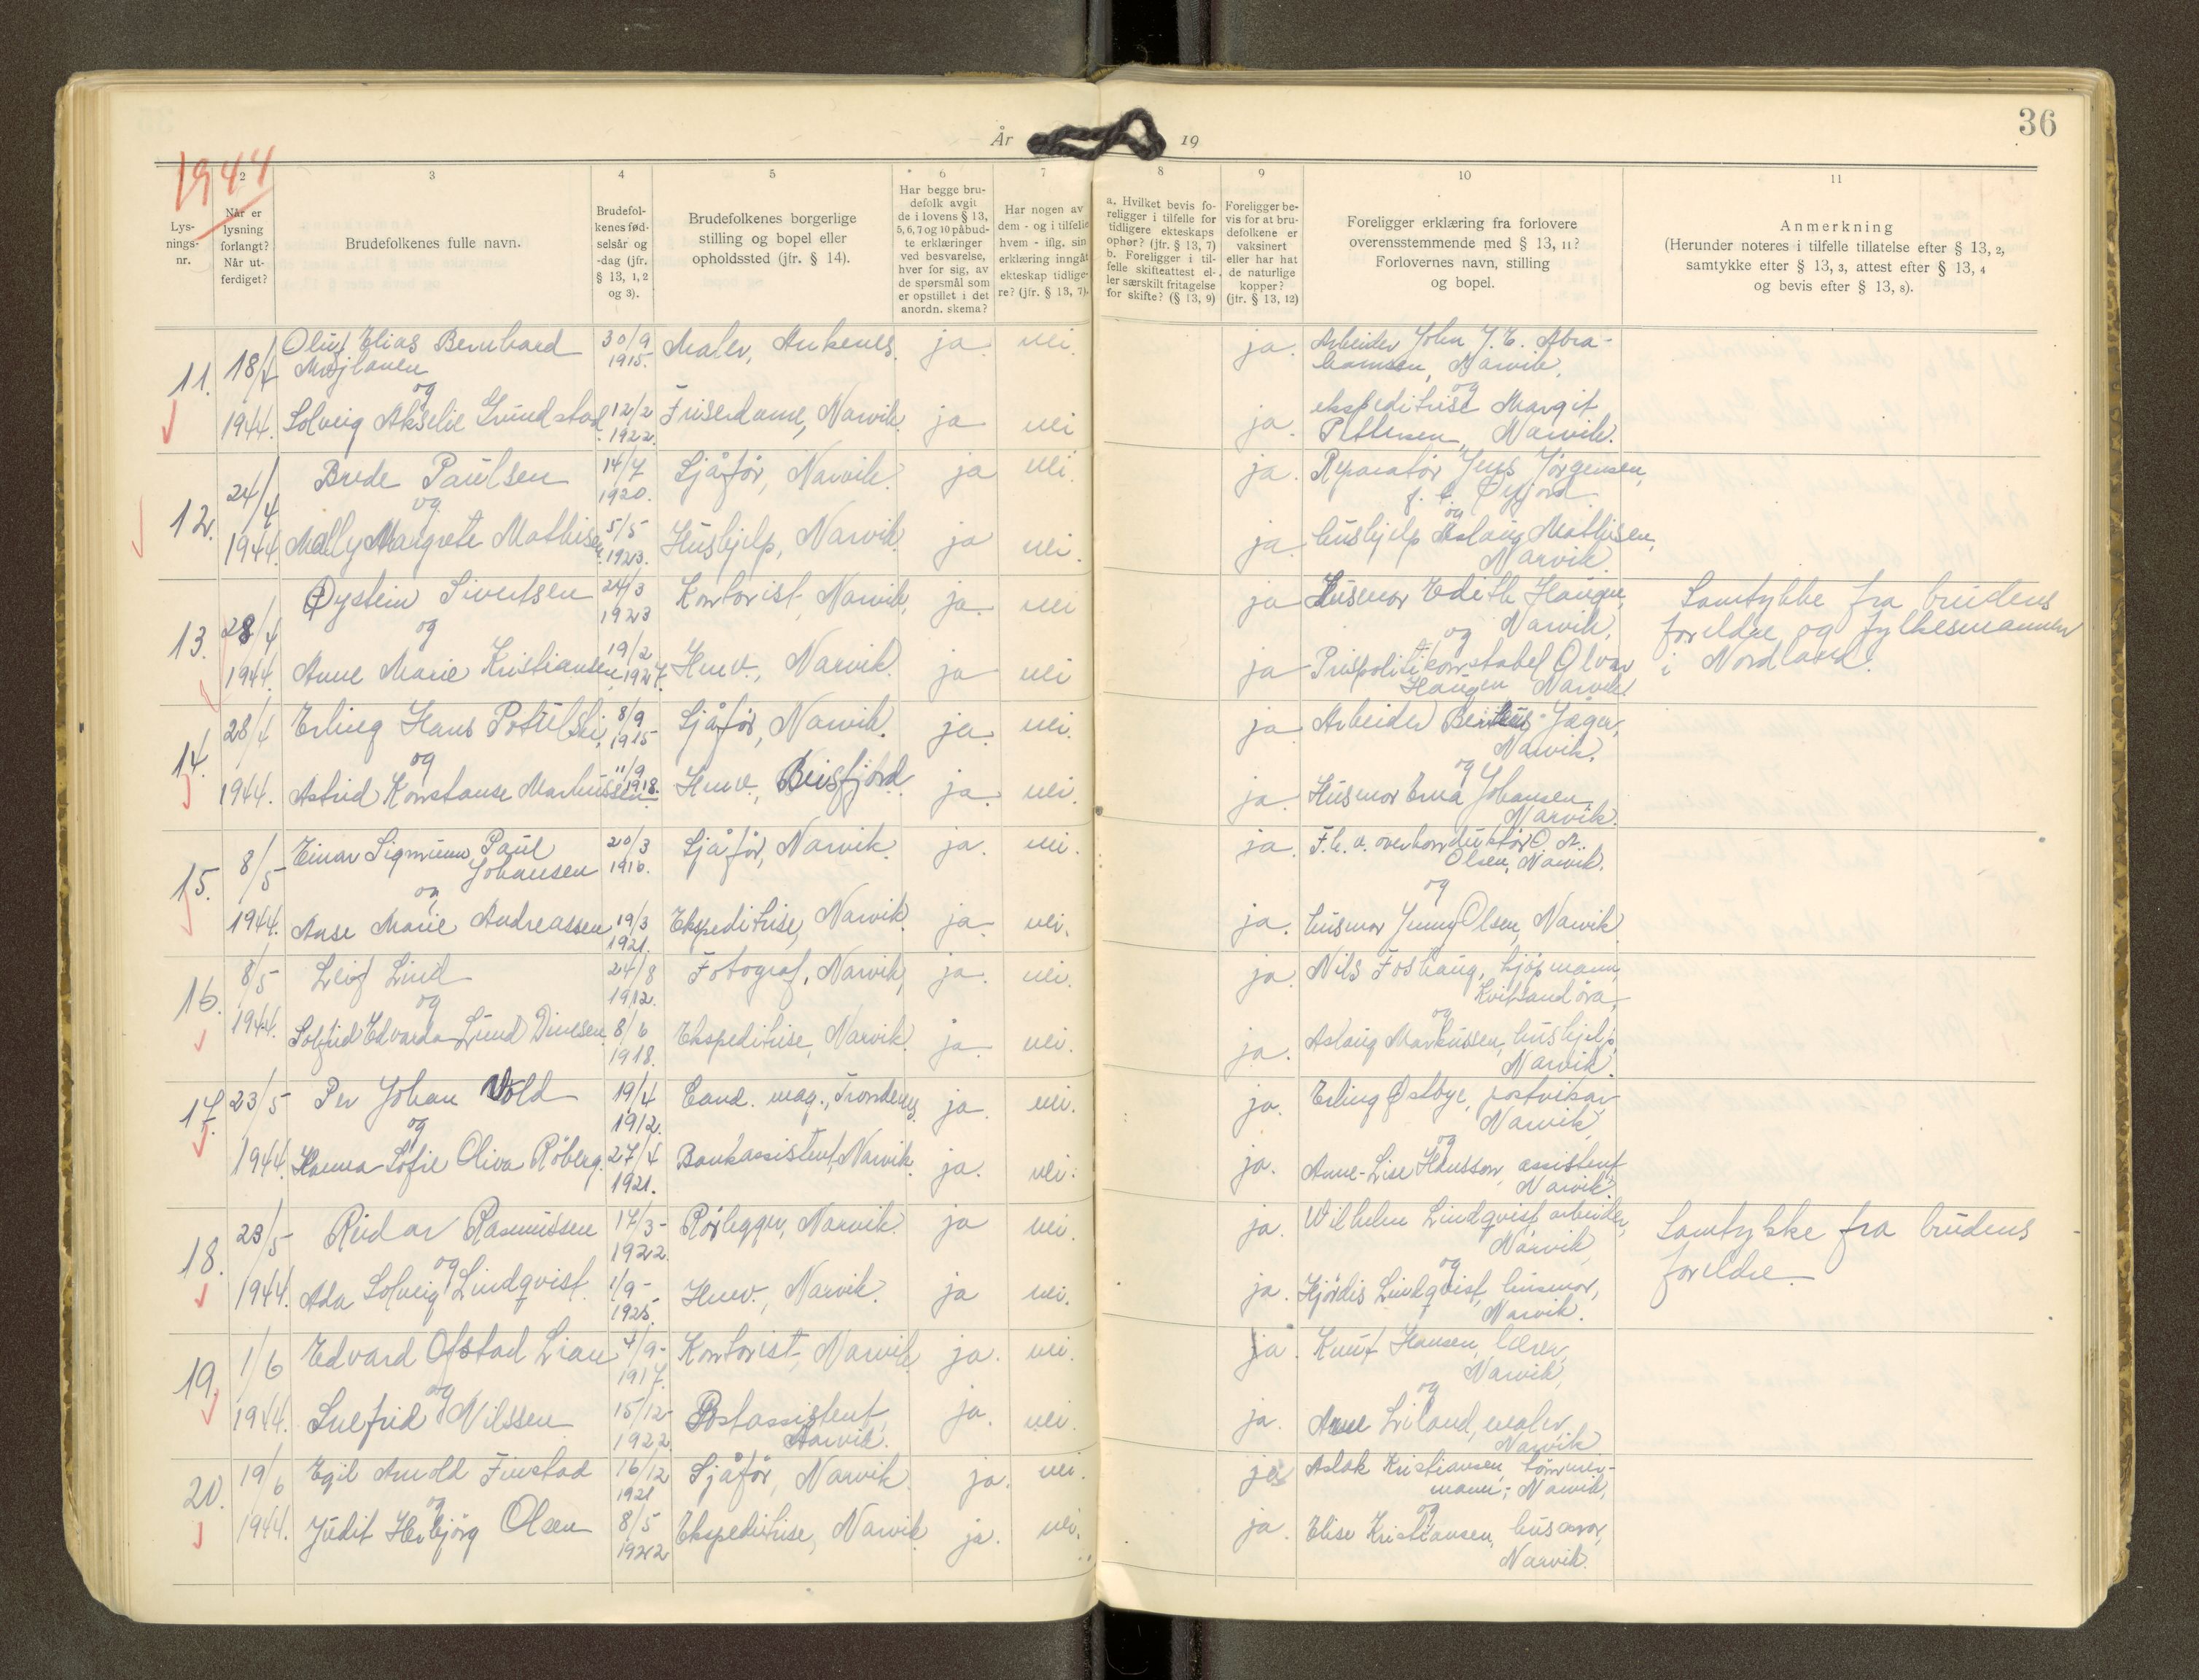 36
År 19
1944
Lys-
nings-
nr.
2
Når er
lysning
forlangt?
Når ut-
ferdiget?
3
Brudefolkenes fulle navn.
4
Brudefol-
kenes fød-
selsår og
-dag (jfr.
§ 13, 1, 2
og 3).
5
Brudefolkenes borgerlige
stilling og bopel eller
opholdssted (jfr. § 14).
6
Har begge bru-
defolk avgit
de i lovens § 13,
5, 6, 7 og 10 påbud-
te erklæringer
ved besvarelse,
hver for sig, av
de spørsmål som
er opstillet i det
anordn. skema?
7
Har nogen av
dem - og i tilfelle
hvem - iflg. sin
erklæring inngått
ekteskap tidlige-
re? (jfr. § 13, 7).
8
a. Hvilket bevis fo-
religger i tilfelle for
tidligere ekteskaps
ophør? (jfr. § 13, 7)
b. Foreligger i til-
felle skifteattest el-
ler særskilt fritagelse
for skifte? (§ 13, 9)
9
Foreligger be-
vis for at bru-
defolkene er
vaksinert
eller har hat
de naturlige
kopper?
(jfr. § 13, 12)
10
Foreligger erklæring fra forlovere
overensstemmende med § 13, 11?
Forlovernes navn, stilling
og bopel.
11
Anmerkning
(Herunder noteres i tilfelle tillatelse efter § 13, 2,
samtykke efter § 13, 3, attest efter § 13, 4
og bevis efter § 13, 8).
11. 18/4 1944.
Oluf Elias Bernhard 30/9 1915. Maler, Ankenes. ja. nei. ja. Arbeider John J. E. Abra-
hamsen, Narvik,
og
Solveig Akselie Grundstad 12/2 1922. Friserdame, Narvik. ja nei ja. ekspeditrise Margit
Pettersen, Narvik.
12. 24/4 1944.
Brede Paulsen 14/7 1920. Sjåfør, Narvik. ja nei. ja. Reparatør Jens Jørgensen,
Øyjord
og
Mally Margrete Mathisen 5/5 1923. Hushjelp, Narvik. ja nei. ja. hushjelp Aslaug Mathisen,
Narvik.
13. 28/4 1944.
Øystein Sivertsen 24/3 1923 Kontorist, Narvik, ja. nei ja Husmor Edith Haugen,
Narvik,
og
Anne Marie Kristiansen, 19/2 1927. Hmv., Narvik. ja nei ja Prispolitikonstabel Olvar
Haugen Narvik.
Samtykke fra brudens
foreldre og fylkesmannen
i Nordland.
14. 28/4 1944.
Erling Hans 8/9 1915 Sjåfør, Narvik. ja. nei. ja Arbeider Jæger,
Narvik.
og
Astrid Konstanse Markussen 11/9 1918. Hmv., Beisfjord. ja. nei. ja. Husmor Erna Johansen
Narvik.
15. 8/5 1944.
Einar Sigmunn Paul
Johansen 20/3 1910. Sjåfør, Narvik. ja. nei. ja. F.h.v. overkonduktør O. A.
Olsen, Narvik.
og
Anse Marie Andreassen 19/3 1921. Ekspeditrise, Narvik. ja. nei. ja. husmor Jenny Olsen, Narvik.
16. 8/5 1944.
Leif Lind 24/8 1912. Fotograf, Narvik, ja. nei. ja. Nils Foshaug, kjøpmann,
Kvitsandøra,
og
Solfrid Edvarda Lund Dinesen 8/6 1918. Ekspeditrise, Narvik. ja. nei. ja. Aslaug Markussen, hushjelp,
Narvik.
17. 23/5 1944.
Per Johan Vold 19/4 1912. Cand. mag., Trondenes. ja. nei. ja. Erling Østbye, postvikar
Narvik,
og
Hanna Sofie Oliva Røberg. 27/4 1921. Bankassistent, Narvik. ja. nei. ja. Anne-Lise Hansson, assistent
Narvik.
18. 23/5 1944.
Reidar Rasmussen 17/3- 1922. Rørlegger, Narvik. ja nei. ja. Wilhelm Lindqvist arbeider,
Narvik,
og
Ada Solveig Lindqvist. 1/9- 1925. Hmv., Narvik. ja nei. ja. Hjørdis Lindqvist, husmor,
Narvik.
Samtykke fra brudens
foreldre.
19. 1/6 1944.
Edvard Ofstad Lian 4/9- 1917. Kontorist, Narvik ja. nei. ja. Knut Hansen, lærer,
Narvik,
og
Snefrid Nilssen 15/12- 1922. Postassistent,
Narvik. ja. nei. ja. Arne Leland, maler,
Narvik
20. 19/6 1944.
Egil Arnold Finstad 16/12 1921 Sjåfør, Narvik. ja. nei. ja Aslak Kristiansen, tømmer-
mann, Narvik,
og
Judit Herbjørg Olsen 8/5 1922 Ekspeditrise, Narvik. ja. nei. ja. Elise Kristiansen, husmor,
Narvik.